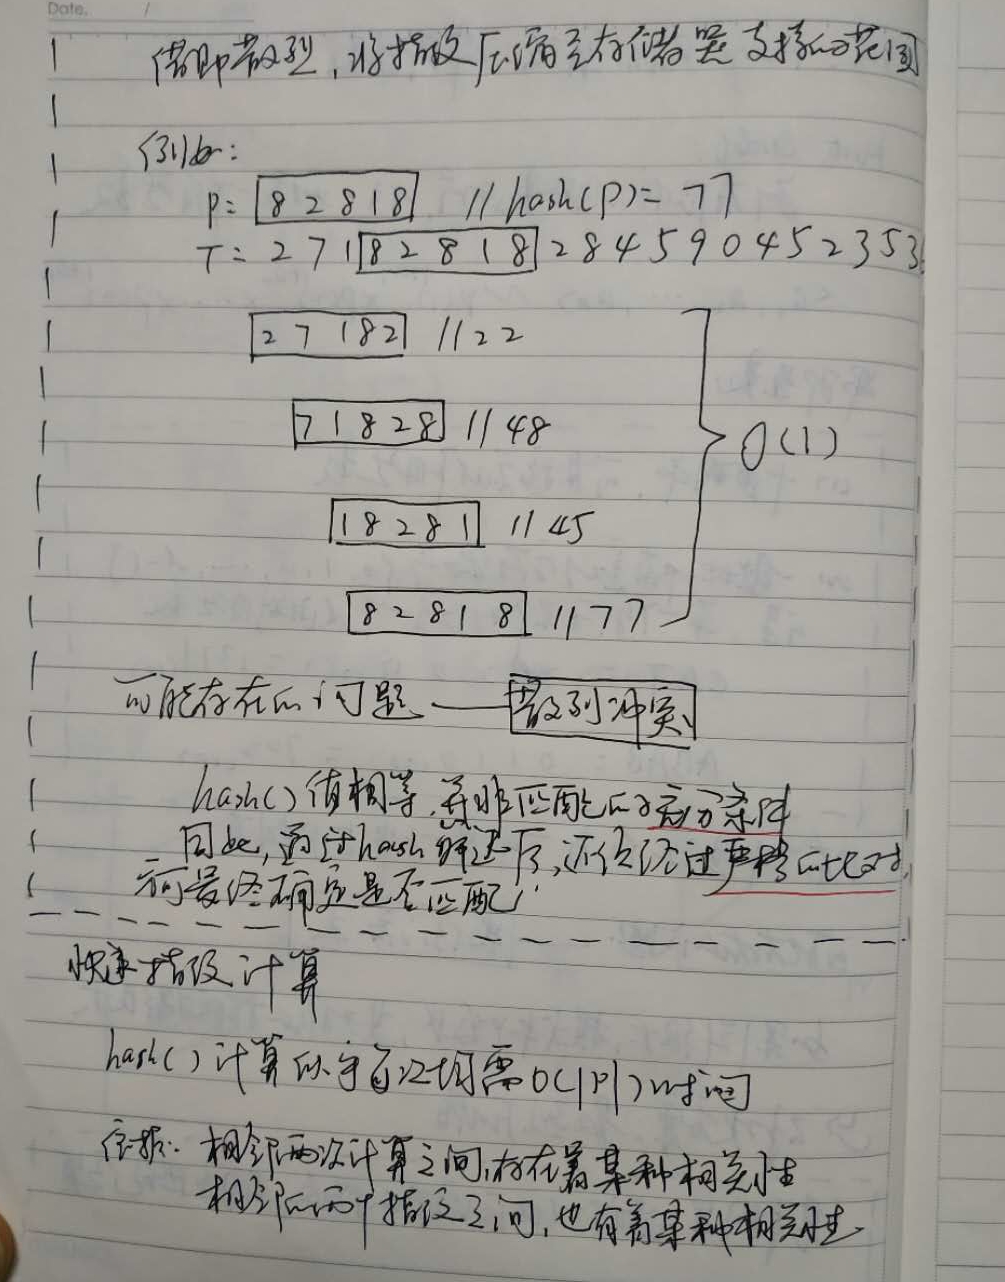 Date. /
借助散列,将指纹压缩至存储器支持的范围
例如:
P= 82818 // hash(P)= 77
T= 27182818284590452353
27182 // 22
71828 // 48
O(1)
18281 // 45
82818 // 77
可能存在的问题——散列冲突
hash()值相等,并非匹配的充分条件
因此,通过hash筛选后,还须经过严格的比对,
方可最终确定是否匹配
快速指纹计算
hash()计算似乎每次均需O(|P|)时间
依据:相邻两次计算之间,存在着某种相关性
相邻的两个指纹之间,也有着某种相关性